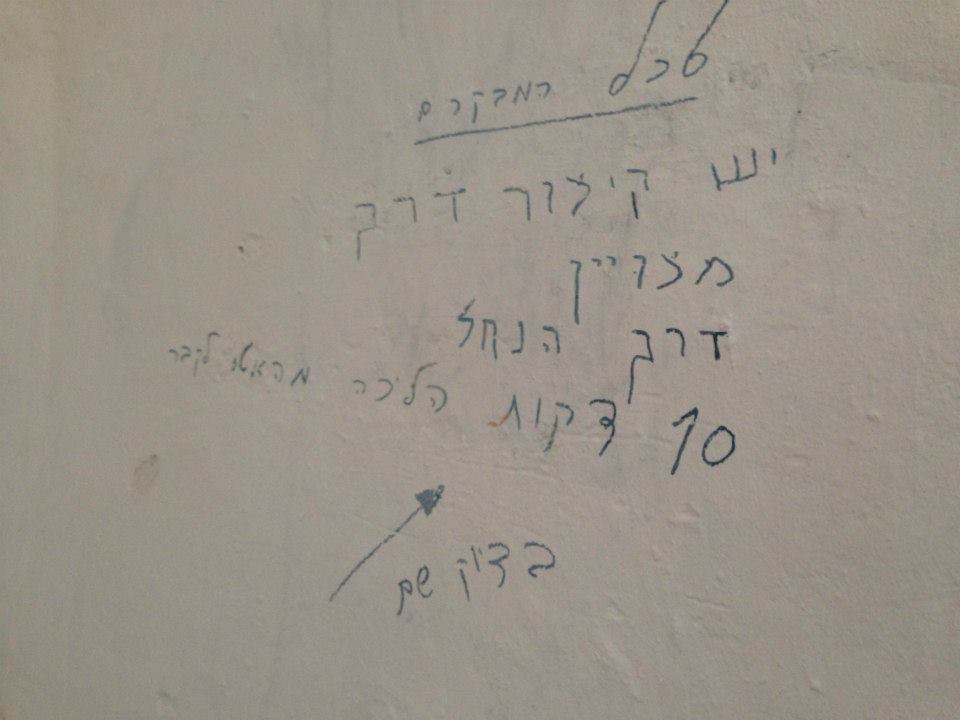 לכל המבקרם
יש קיצור דרך
מצויין
דרך הנחל
10 דקות הליכה מהאטו לקבר
בדיוק שם